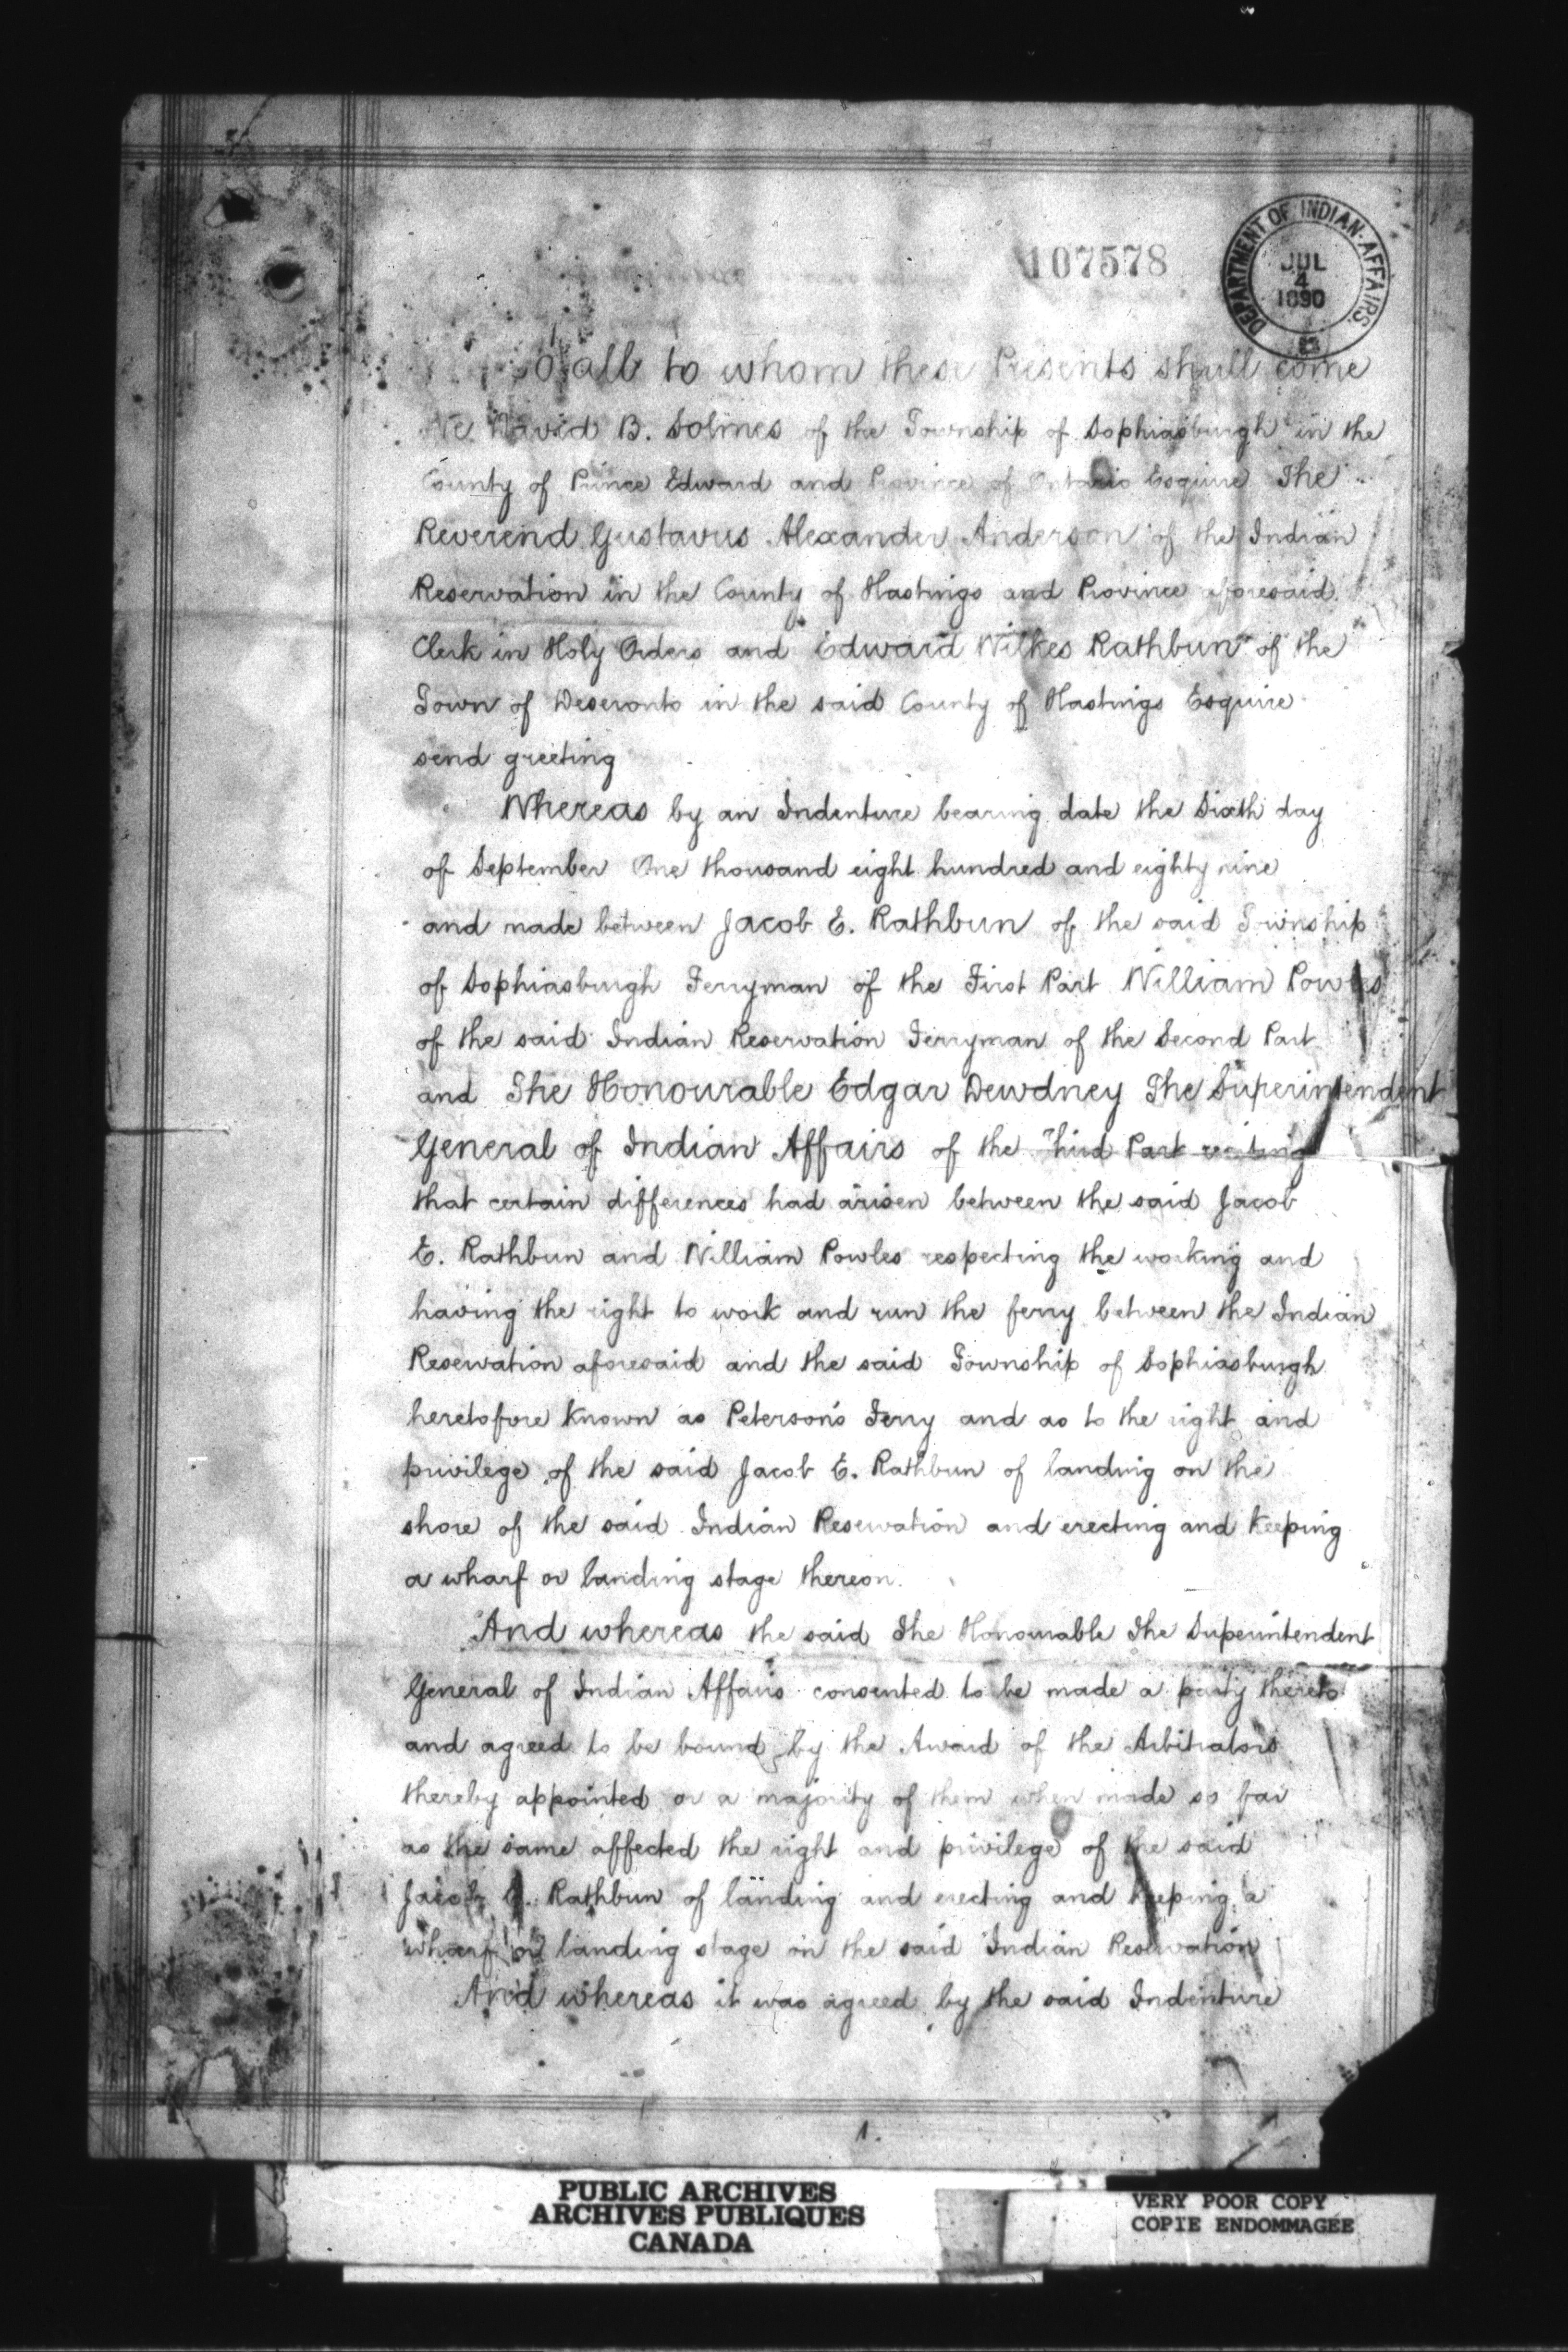 107578
DEPARTMENT OF INDIAN AFFAIRS.
JUL
4
1890
To all to whom these Presents shall come
We David B. Solmes of the Township of Sophiasburgh in the
County of Prince Edward and Province of Ontario Esquire The
Reverend Gustavus Alexander Anderson of the Indian
Reservation in the County of Hastings and Province aforesaid
Clerk in Holy Orders and Edward Wilkes Rathbun of the
Town of Deseronto in the said County of Hastings Esquire
send greeting
Whereas by an Indenture bearing date the Sixth day
of September One thousand eight hundred and eighty nine
and made between Jacob E. Rathbun of the said Township
of Sophiasburgh Ferryman of the First Part William Powles
of the said Indian Reservation Ferryman of the Second Part
and The Honourable Edgar Dewdney The Superintendent
General of Indian Affairs of the Third Part reciting
that certain differences had arisen between the said Jacob
E. Rathbun and William Powles respecting the working and
having the right to work and run the ferry between the Indian
Reservation aforesaid and the said Township of Sophiasburgh
heretofore known as Peterson's Ferry and as to the right and
privilege of the said Jacob E. Rathbun of landing on the
shore of the said Indian Reservation and erecting and keeping
a wharf or landing stage thereon.
And whereas the said The Honourable The Superintendent
General of Indian Affairs consented to be made a party thereto
and agreed to be bound by the Award of the Arbitrators
thereby appointed or a majority of them when made so far
as the same affected the right and privilege of the said
Jacob E. Rathbun of landing and erecting and keeping a
wharf or landing stage on the said Indian Reservation
And whereas it was agreed by the said Indenture
1.
PUBLIC ARCHIVES
ARCHIVES PUBLIQUES
CANADA
VERY POOR COPY
COPIE ENDOMMAGEE